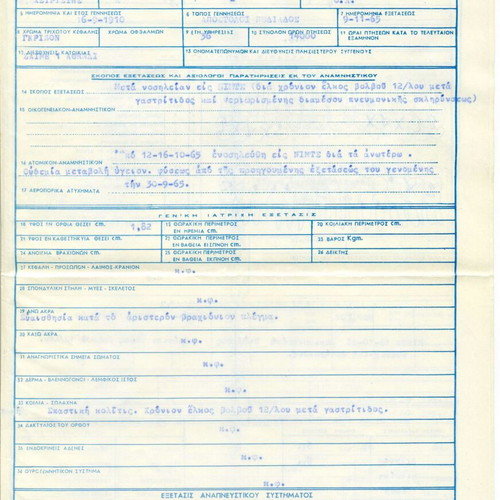 5 ΗΜΕΡΟΜΗΝΙΑ ΚΑΙ ΕΤΟΣ ΓΕΝΝΗΣΕΩΣ 6 ΤΟΠΟΣ ΓΕΝΝΗΣΕΩΣ 7 ΗΜΕΡΟΜΗΝΙΑ ΕΞΕΤΑΣΕΩΣ
16-5-1910 9-11-65
ΧΡΩΜΑ ΤΡΙΧΩΤΟΥ ΚΕΦΑΛΗΣ ΧΡΩΜΑ ΟΦΘΑΛΜΩΝ ΕΤΗ ΥΠΗΡΕΣΙΑΣ ΣΥΝΟΛΟΝ ΩΡΩΝ ΠΤΗΣΕΩΣ 11 ΩΡΑΙ ΠΤΗΣΕΩΝ ΚΑΤΑ ΤΟ ΤΕΛΕΥΤΑΙΟΝ ΕΞΑΜΗΝΟΝ
36
ΔΙΕΥΘΥΝΣΙΣ ΚΑΤΟΙΚΙΑΣ 13 ΟΝΟΜΑΤΕΠΩΝΥΜΟΝ ΚΑΙ ΔΙΕΥΘΥΝΣΙΣ ΠΛΗΣΙΕΣΤΕΡΟΥ ΣΥΓΓΕΝΟΥΣ
ΣΚΟΠΟΣ ΕΞΕΤΑΣΕΩΣ ΚΑΙ ΑΞΙΟΛΟΓΟΙ ΠΑΡΑΤΗΡΗΣΕΙΣ ΕΚ ΤΟΥ ΑΝΑΜΝΗΣΤΙΚΟΥ
14 ΣΚΟΠΟΣ ΕΞΕΤΑΣΕΩΣ Μετά νοσηλείαν είς ΝΙΜΤΣ (διά χρόνιον έλκος βολβού 12/λου μετά
γαστρίτιδος καί περιωρισμένης διαμέσου πνευμονικής σκληρύνσεως)
15 ΟΙΚΟΓΕΝΕΙΑΚΟΝ-ΑΝΑΜΝΗΣΤΙΚΟΝ
Από 12-16-10-65 ένοσηλεύθη είς ΝΙΜΤΣ διά τά άνωτέρω .
16 ΑΤΟΜΙΚΟΝ-ΑΝΑΜΝΗΣΤΙΚΟΝ
Ούδεμία μεταβολή ύγειον. φύσεως από τής προηγουμένης έξετάσεώς του γενομένης
17 ΑΕΡΟΠΟΡΙΚΑ ΑΤΥΧΗΜΑΤΑ τήν 30-9-65.
ΓΕΝΙΚΗ ΙΑΤΡΙΚΗ ΕΞΕΤΑΣΙΣ
18 ΥΨΟΣ ΕΝ ΟΡΘΙΑ ΘΕΣΕΙ cm. 1,82 ΘΩΡΑΚΙΚΗ ΠΕΡΙΜΕΤΡΟΣ ΕΝ ΗΡΕΜΙΑ cm. ΚΟΙΛΙΑΚΗ ΠΕΡΙΜΕΤΡΟΣ cm.
ΥΨΟΣ ΕΝ ΚΑΘΕΚΤΙΚΗ ΘΕΣΕΙ cm. ΘΩΡΑΚΙΚΗ ΠΕΡΙΜΕΤΡΟΣ ΕΝ ΒΑΘΕΙΑ ΕΙΣΠΝΟΗ cm. ΒΑΡΟΣ Kgm.
ΑΝΟΙΓΜΑ ΒΡΑΧΙΟΝΩΝ cm. ΘΩΡΑΚΙΚΗ ΠΕΡΙΜΕΤΡΟΣ ΕΝ ΒΑΘΕΙΑ ΕΚΠΝΟΗ cm. ΔΕΙΚΤΗΣ
27 ΚΕΦΑΛΗ - ΠΡΟΣΩΠΟΝ - ΛΑΙΜΟΣ-ΚΡΑΝΙΟΝ
Μ.φ.
28 ΣΠΟΝΔΥΛΙΚΗ ΣΤΗΛΗ - ΜΥΕΣ - ΣΚΕΛΕΤΟΣ
Μ.φ.
29 ΑΝΩ ΑΚΡΑ
κατά τό άριστερόν βραχιόνιον πλέγμα.
30 ΚΑΤΩ ΑΚΡΑ
Μ.φ.
31 ΑΝΑΓΝΩΡΙΣΤΙΚΑ ΣΗΜΕΙΑ ΣΩΜΑΤΟΣ
32 ΔΕΡΜΑ - ΒΛΕΝΝΟΓΟΝΟΙ - ΛΕΜΦΙΚΟΣ ΙΣΤΟΣ
Μ.φ.
33 ΚΟΙΛΙΑ - ΣΠΛΑΧΝΑ
Σπαστική κολίτις. Χρόνιον έλκος βολβού 12/λου μετά γαστρίτιδος.
34 ΔΑΚΤΥΛΙΟΣ ΤΟΥ ΟΡΘΟΥ
Μ.φ.
35 ΕΝΔΟΚΡΙΝΕΙΣ ΑΔΕΝΕΣ
Μ.φ.
36 ΟΥΡΟΓΕΝΝΗΤΙΚΟΝ ΣΥΣΤΗΜΑ
Μ.φ.
ΕΞΕΤΑΣΙΣ ΑΝΑΠΝΕΥΣΤΙΚΟΥ ΣΥΣΤΗΜΑΤΟΣ